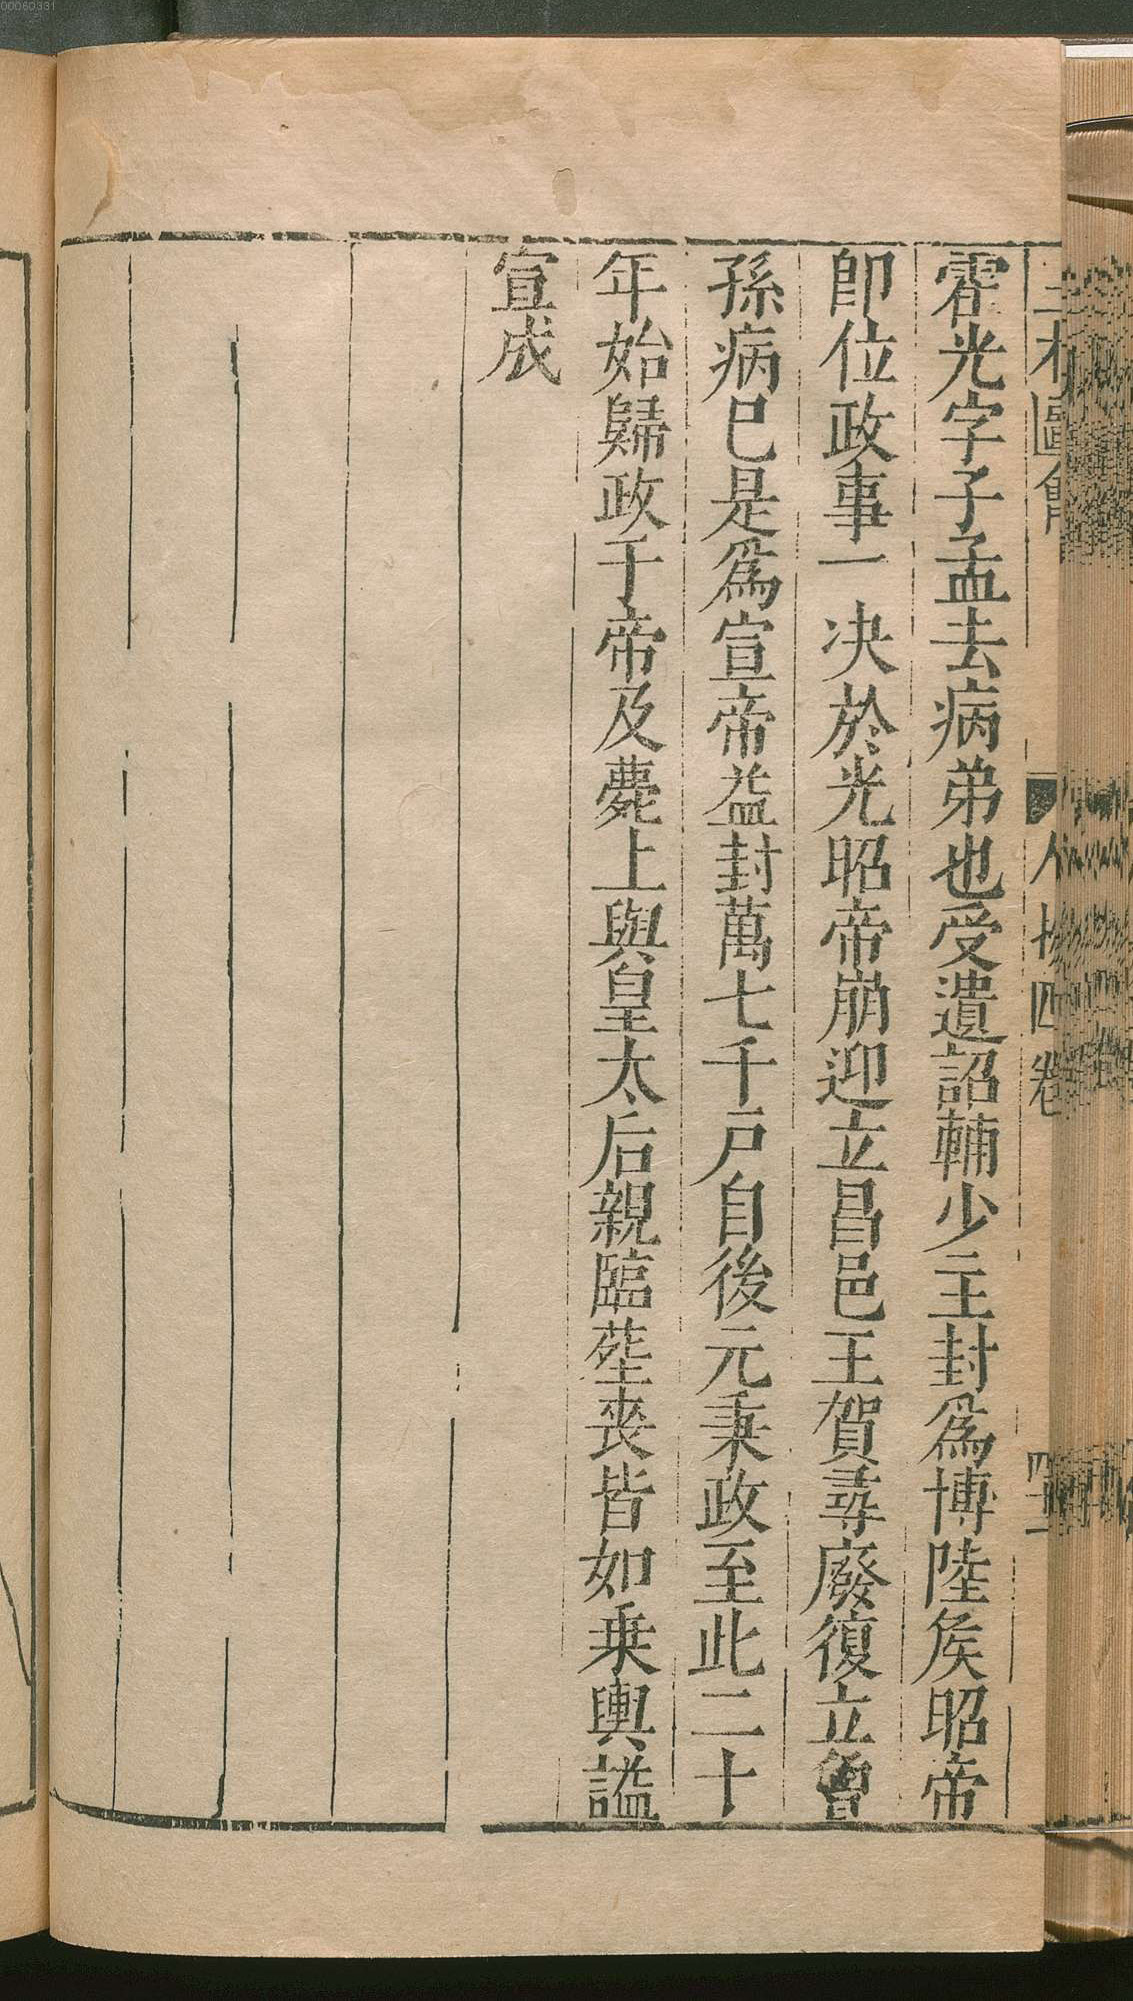 霍光字子孟去病弟也受遺詔輔少主封爲博陸矦昭帝
卽位政事一决於光昭帝崩迎立昌邑王賀尋廢復立曾
孫病巳是爲宣帝益封萬七千戸自後元秉政至此二十
年始歸政于帝及薨上與皇太后親臨塟喪皆如乗輿謚
宣成
人物四卷
00060331